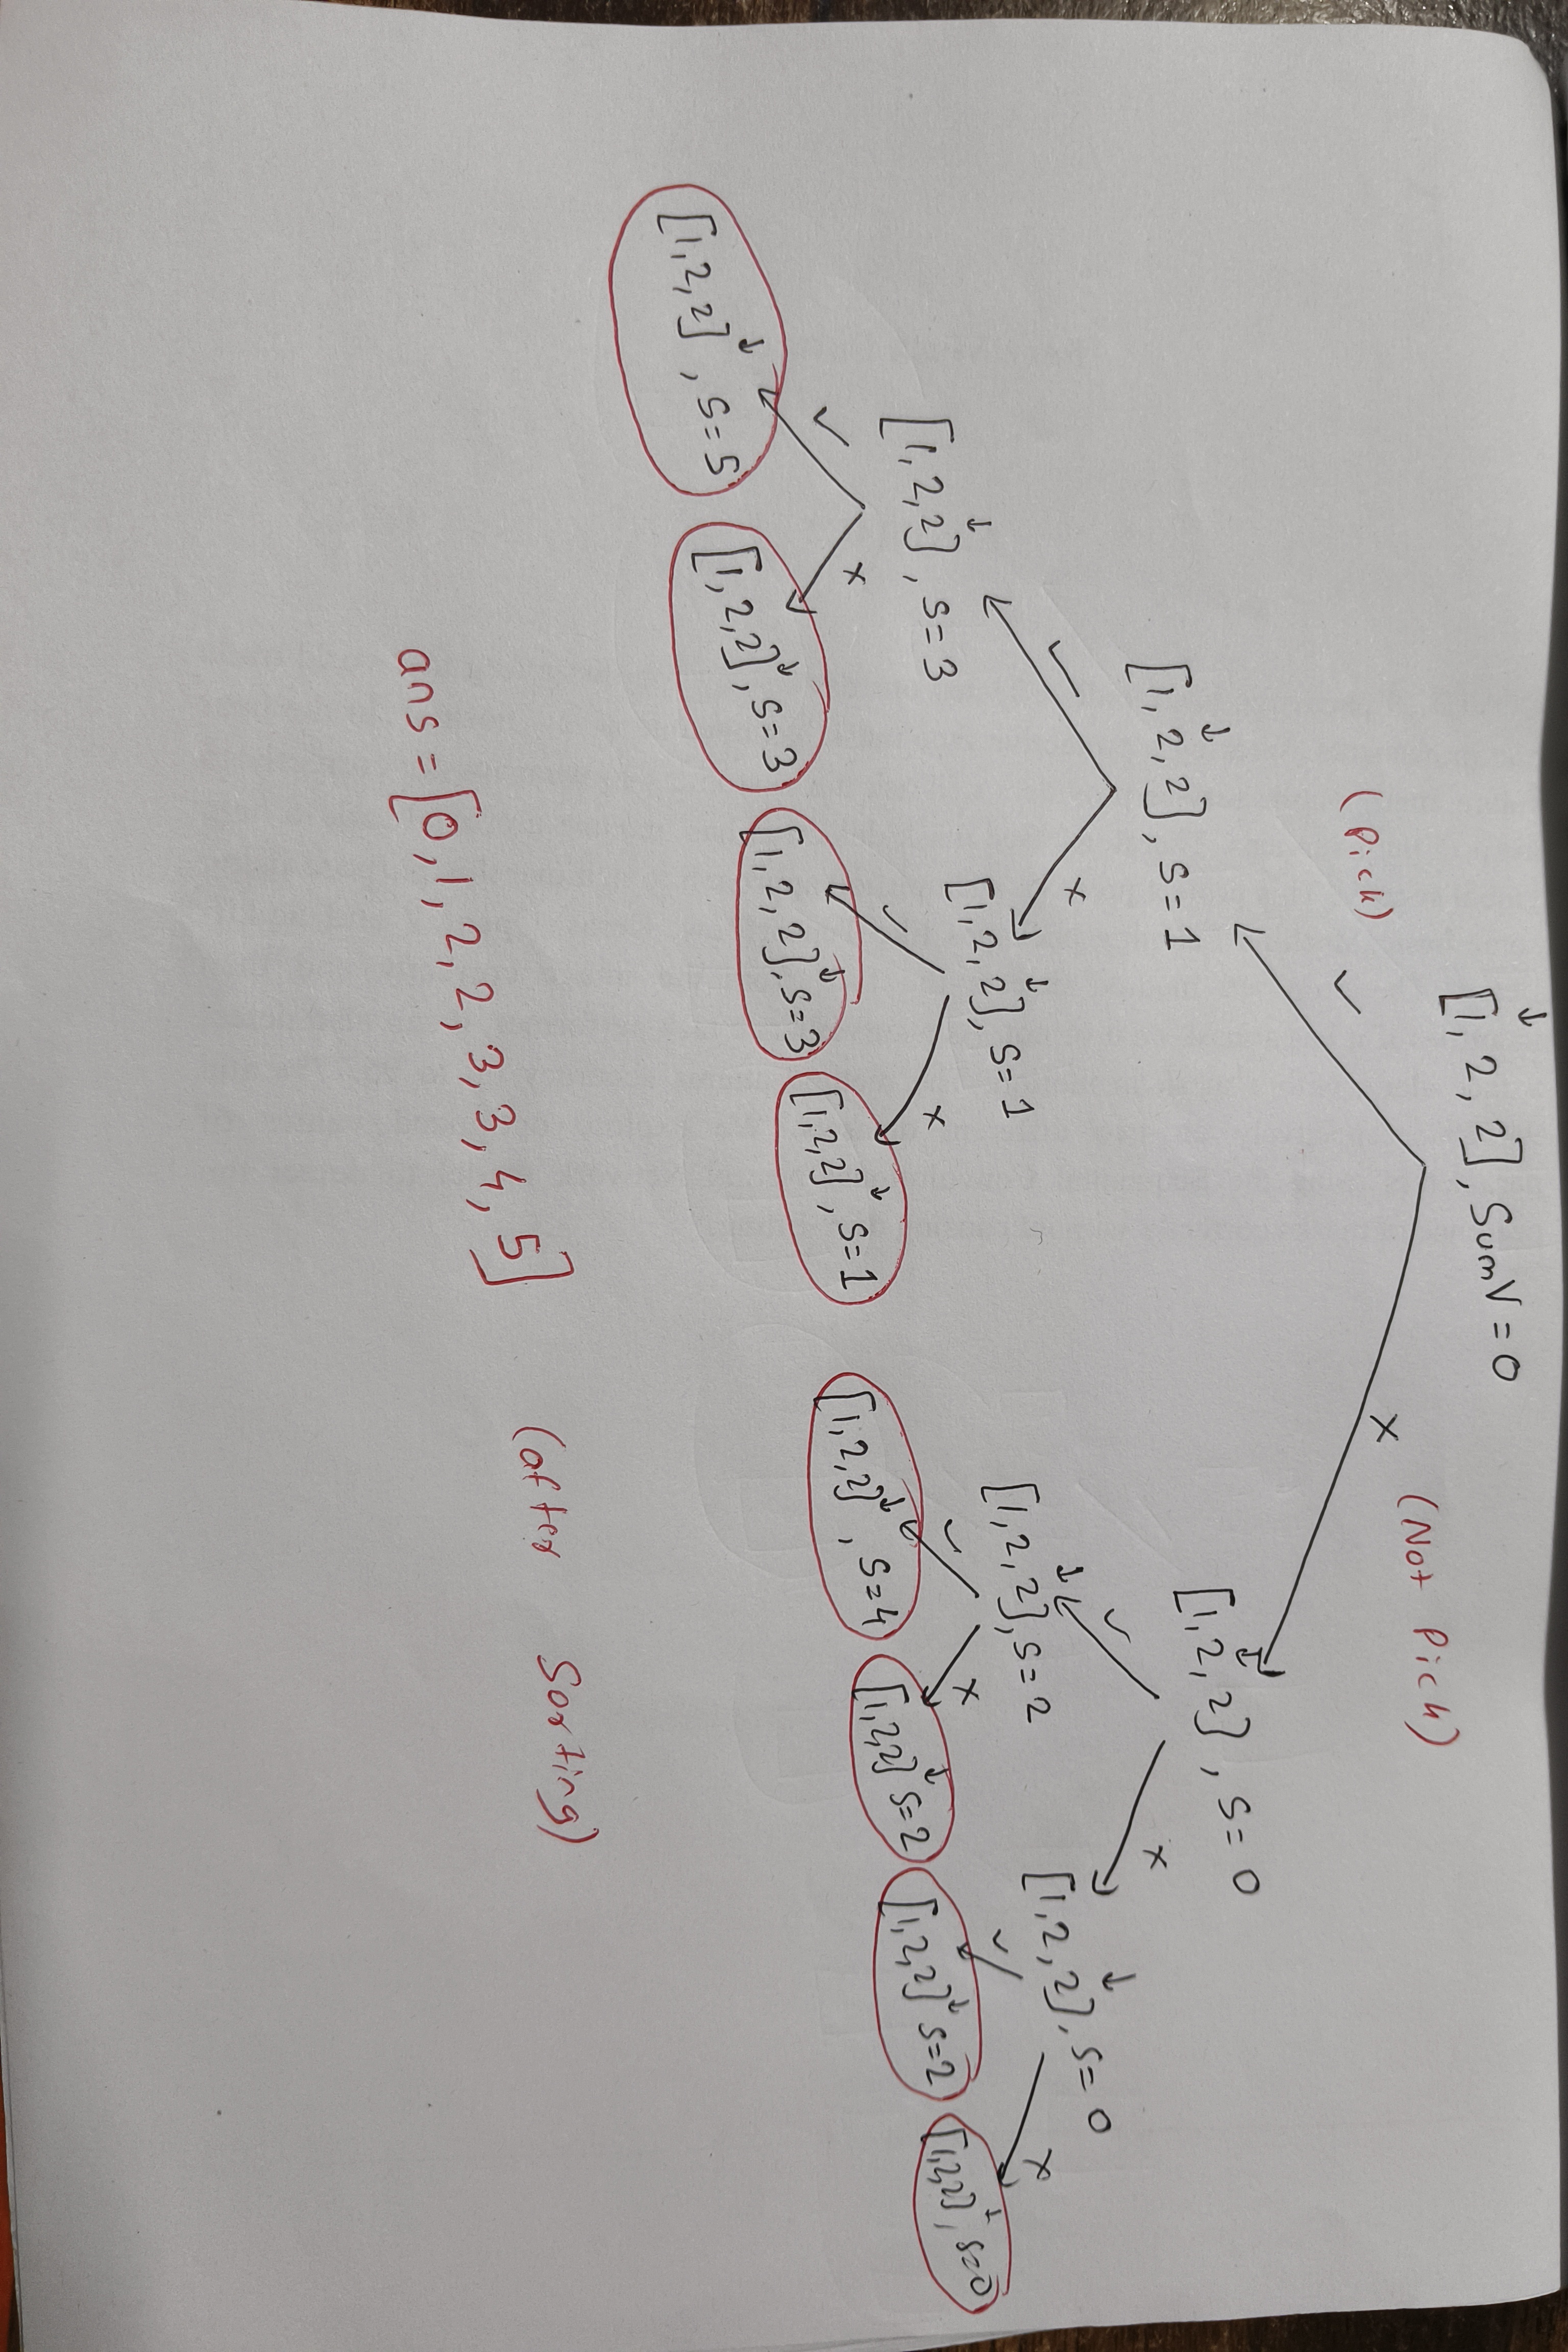 ↓
[1, 2, 2], SumV = 0
(Not Pick)
×
(Pick)
✓
↓
[1, 2, 2], S = 0
↓
[1, 2, 2], S = 1
✓ ×
✓ ×
↓
[1, 2, 2], S = 0
↓
[1, 2, 2], S = 2
↓
[1, 2, 2], S = 1
↓
[1, 2, 2], S = 3
✓ ×
✓ ×
✓ ×
✓ ×
[1, 2, 2]↓, S = 5
[1, 2, 2]↓, S = 3
[1, 2, 2]↓, S = 3
[1, 2, 2]↓, S = 1
[1, 2, 2]↓, S = 4
[1, 2, 2]↓ S = 2
[1, 2, 2]↓ S = 2
[1, 2, 2]↓, S = 0
ans = [0, 1, 2, 2, 3, 3, 4, 5] (after Sorting)